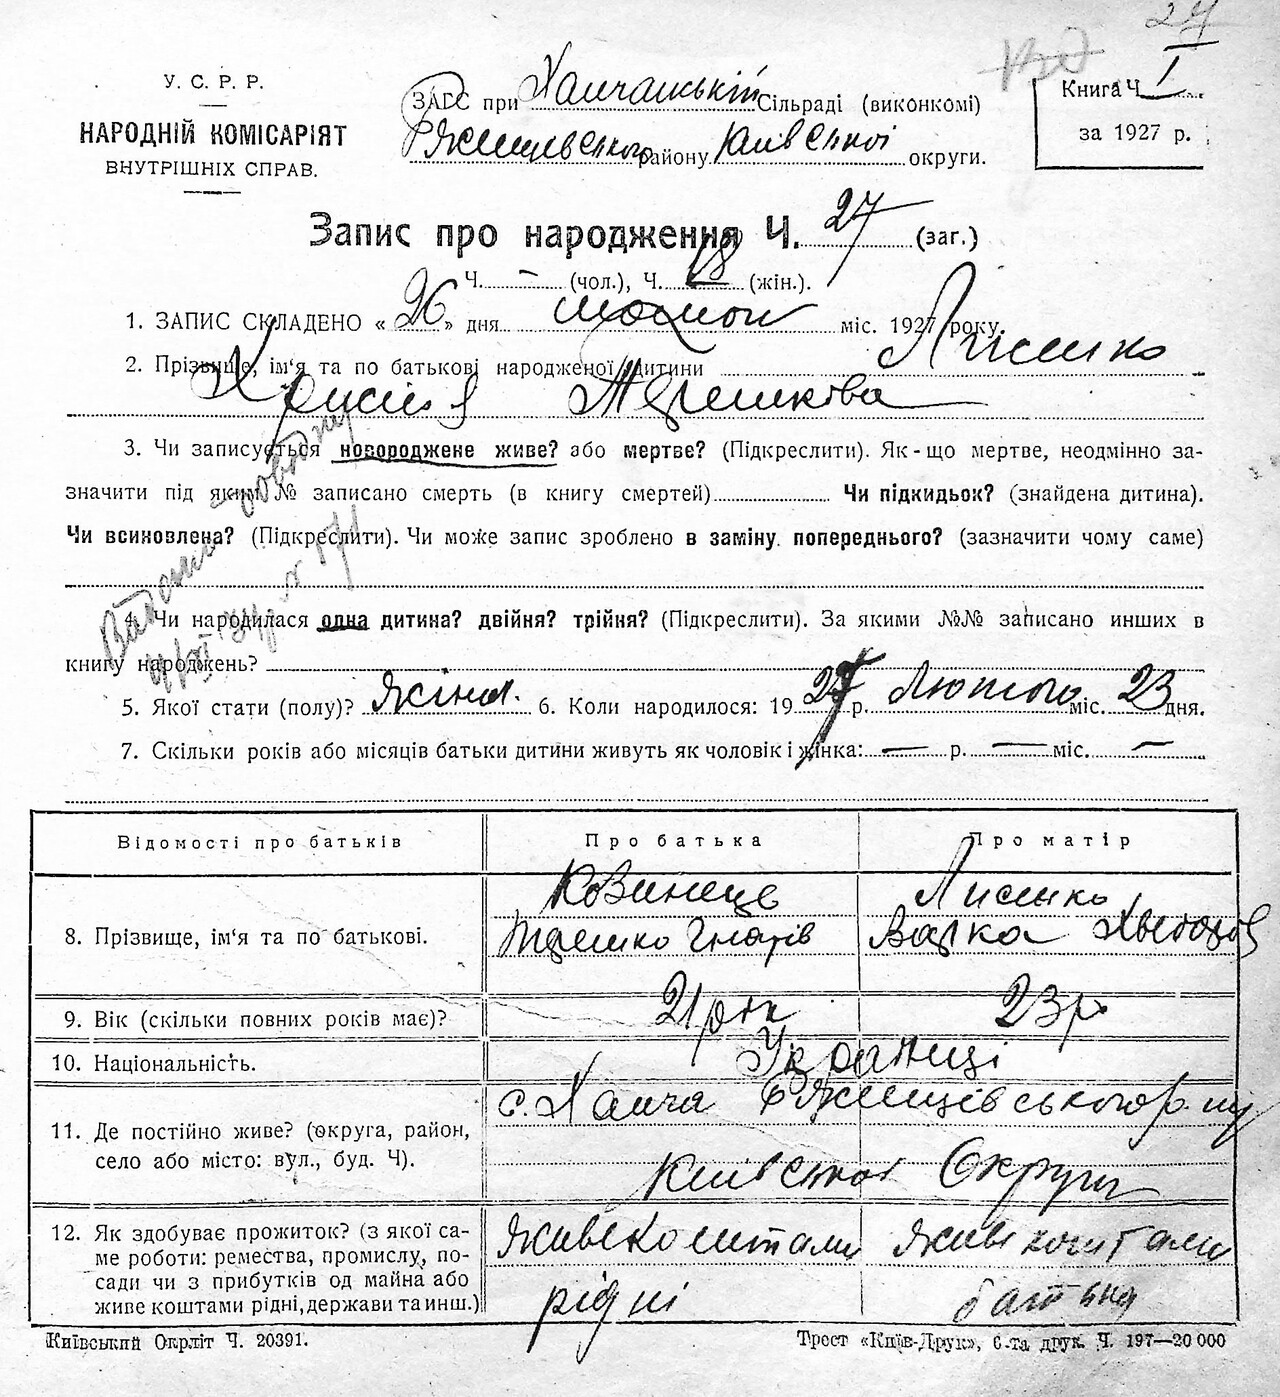 27
У. С. Р. Р.
НАРОДНІЙ КОМІСАРІЯТ
ВНУТРІШНІХ СПРАВ.
ЗАГС при Ханчанській Сільраді (виконкомі)
Ржищівського району Київської округи.
Книга Ч. I
за 1927 р.
Запис про народження Ч. 27 (заг.)
Ч. — (чол.), Ч. 18 (жін.).
1. ЗАПИС СКЛАДЕНО « 26 » дня лютого міс. 1927 року.
2. Прізвище, ім'я та по батькові народженої дитини Лисенко
Хрисия Терешкова
3. Чи записується новороджене живе? або мертве? (Підкреслити). Як-що мертве, неодмінно за-
значити під яким № записано смерть (в книгу смертей) Чи підкидьок? (знайдена дитина).
Чи всиновлена? (Підкреслити). Чи може запис зроблено в заміну попереднього? (зазначити чому саме)
4. Чи народилася одна дитина? двійня? трійня? (Підкреслити). За якими №№ записано инших в
книгу народжень?
5. Якої стати (полу)? жіноч. 6. Коли народилося: 1927 р. Лютого міс. 23 дня.
7. Скільки років або місяців батьки дитини живуть як чоловік і жінка: — р. — міс. —
Відомості про батьків Про батька Про матір
8. Прізвище, ім'я та по батькові. Ковинець Лисенко
Терешко Гнатів Варка Хведорів
9. Вік (скільки повних років має)? 21 рік 23 р.
10. Національність. Українці
11. Де постійно живе? (округа, район, село або місто: вул., буд. Ч). с. Ханча Ржищівського р-ну
Київської Округи
12. Як здобуває прожиток? (з якої са- Живе коштами Живе коштами
ме роботи: ремества, промислу, по-
сади чи з прибутків од майна або рідні батька
живе коштами рідні, держави та инш.)
Київський Окрліт Ч. 20391. Трест «Київ-Друк», 6-та друк. Ч. 197—20 000